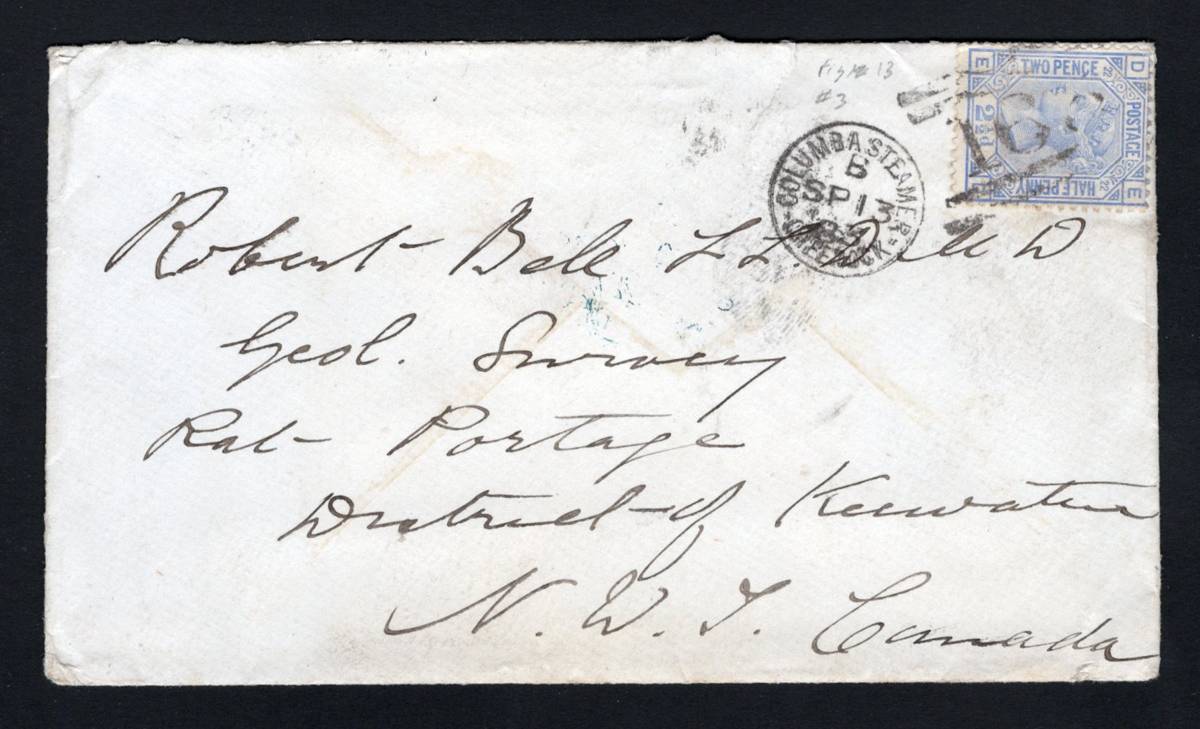 Figure 13
#3
E TWO PENCE 22 D
POSTAGE
2½d
E HALF PENNY 22 E
163
COLUMBA STEAMER
B
SP 13
GREENOCK
Robert Bell LL.D. M D
Geol. Survey
Rat Portage
District of Keewatin
N. W. T. Canada